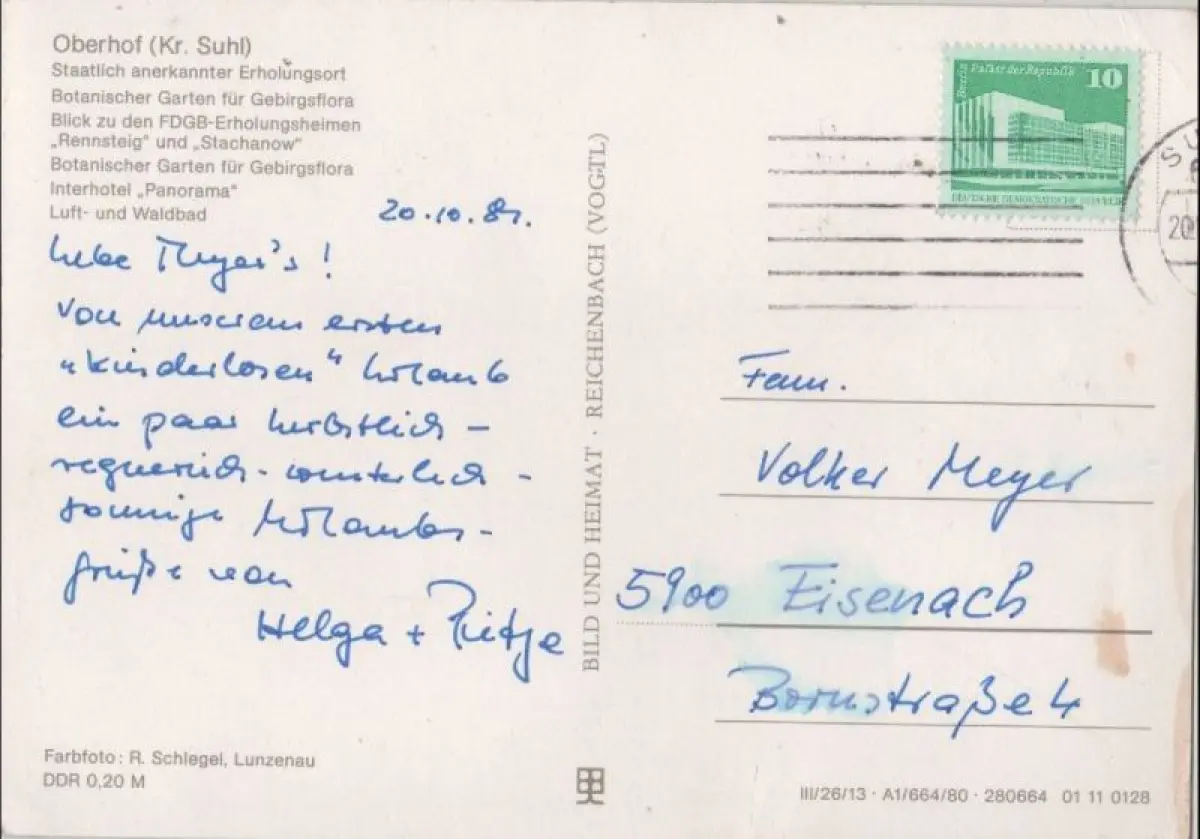 Oberhof (Kr. Suhl)
Staatlich anerkannter Erholungsort
Botanischer Garten für Gebirgsflora
Blick zu den FDGB-Erholungsheimen
„Rennsteig" und „Stachanow"
Botanischer Garten für Gebirgsflora
Interhotel „Panorama"
Luft- und Waldbad
20.10.81.
Liebe Meyer's!
Von unserem ersten
"kinderlosen" Urlaub
ein paar herbstlich -
regnerisch - winterlich -
sonnige Urlaubs-
grüße von
Helga +
Farbfoto: R. Schlegel, Lunzenau
DDR 0,20 M
BILD UND HEIMAT · REICHENBACH (VOGTL)
Berlin Palast der Republik 10
DEUTSCHE DEMOKRATISCHE REPUBLIK
SU
20
Fam.
Volker Meyer
5900 Eisenach
Bornstraße 4
III/26/13 · A1/664/80 · 280664 01 11 0128